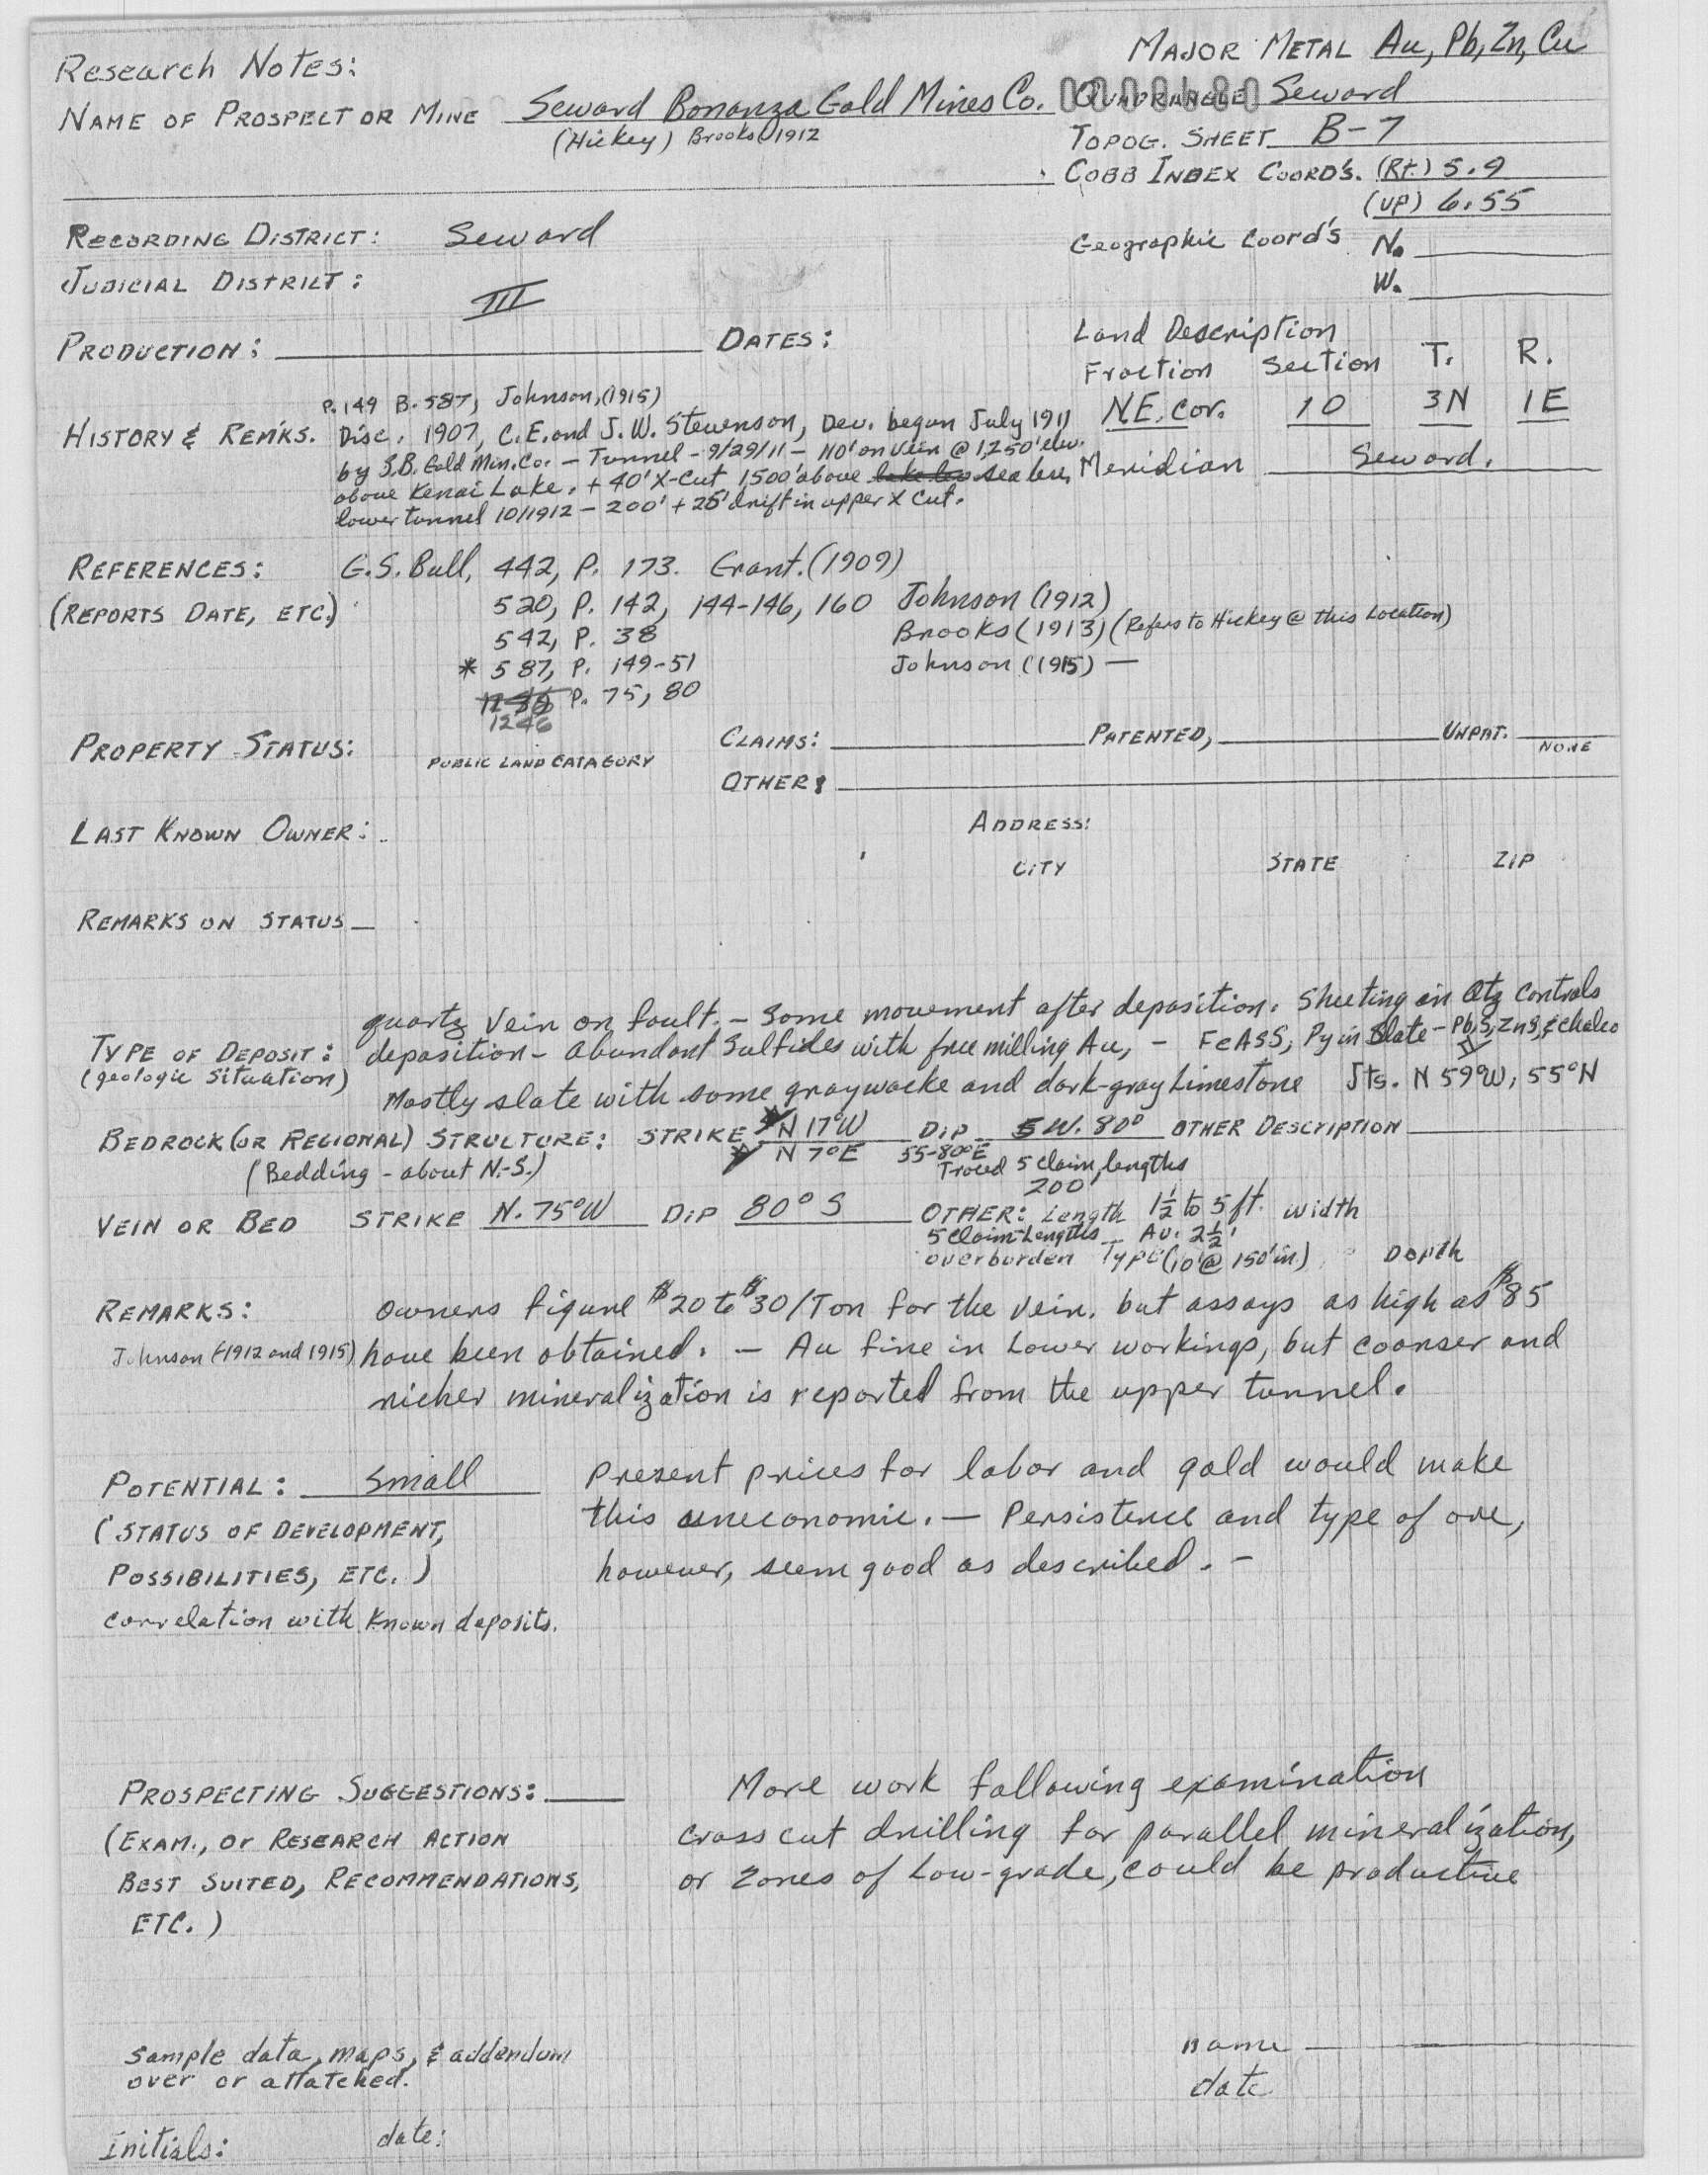 Research Notes:
MAJOR METAL Au, Pb, Zn, Cu
NAME OF PROSPECT OR MINE Seward Bonanza Gold Mines Co. QUADRANGLE Seward
(Hickey) Brooks 1912
TOPOG. SHEET B-7
COBB INDEX COORD'S. (Rt.) 5.9
(UP) 6.55
RECORDING DISTRICT: Seward
Geographic Coord's N.
W.
JUDICIAL DISTRICT: III
PRODUCTION: DATES:
Land Description
Fraction Section T. R.
N.E. Cor. 10 3N 1E
Meridian Seward.
P. 149 B. 587, Johnson, (1915)
HISTORY & REM'KS. Disc. 1907, C.E. and J.W. Stevenson, Dev. began July 1911
by S.B. Gold Min. Co. - Tunnel - 9/29/11 - 110' on vein @ 1,250' elev.
above Kenai Lake. + 40' X-cut 1,500' above lake lev sea lev,
lower tunnel 10/1912 - 200' + 25' drift in upper X cut.
REFERENCES: G.S. Bull, 442, P. 173. Grant. (1909)
(REPORTS DATE, ETC.) 520, P. 142, 144-146, 160 Johnson (1912)
542, P. 38 Brooks (1913) (Refers to Hickey @ this Location)
* 587, P. 149-51 Johnson (1915) —
P. 75, 80
1246
PROPERTY STATUS: PUBLIC LAND CATAGORY CLAIMS: PATENTED, UNPAT.
NONE
OTHER:
LAST KNOWN OWNER: ADDRESS:
CITY STATE ZIP
REMARKS ON STATUS —
quartz vein on fault. - Some movement after deposition. Sheeting in Qtz controls
TYPE OF DEPOSIT: deposition - abundant sulfides with free milling Au, - FeASS, Py in Slate - PbS, ZnS, & chalco
(geologic situation) Mostly slate with some graywacke and dark-gray Limestone Jts. N 59°W, 55°N
BEDROCK (OR REGIONAL) STRUCTURE: STRIKE N 17°W DIP SW. 80° OTHER DESCRIPTION
(Bedding - about N.-S.) N 7°E 55-80°E
Traced 5 claim lengths
200'
VEIN OR BED STRIKE N. 75°W DIP 80° S OTHER: Length 1½ to 5 ft. width
5 Claim-Lengths - Av. 2½'
overburden Type (10' @ 150' in) Depth
REMARKS: Owners figure $20 to $30/Ton for the vein. but assays as high as $85
Johnson (1912 and 1915) have been obtained. - Au fine in Lower workings, but coarser and
richer mineralization is reported from the upper tunnel.
POTENTIAL: Small Present prices for labor and gold would make
(STATUS OF DEVELOPMENT, this uneconomic. - Persistence and type of ore,
POSSIBILITIES, ETC.) however, seem good as described. -
correlation with known deposits.
PROSPECTING SUGGESTIONS: More work following examination
(EXAM., OR RESEARCH ACTION crosscut drilling for parallel mineralization,
BEST SUITED, RECOMMENDATIONS, or zones of Low-grade, could be productive
ETC.)
Sample data, maps, & addendum
over or attatched.
name
date
Initials: date: